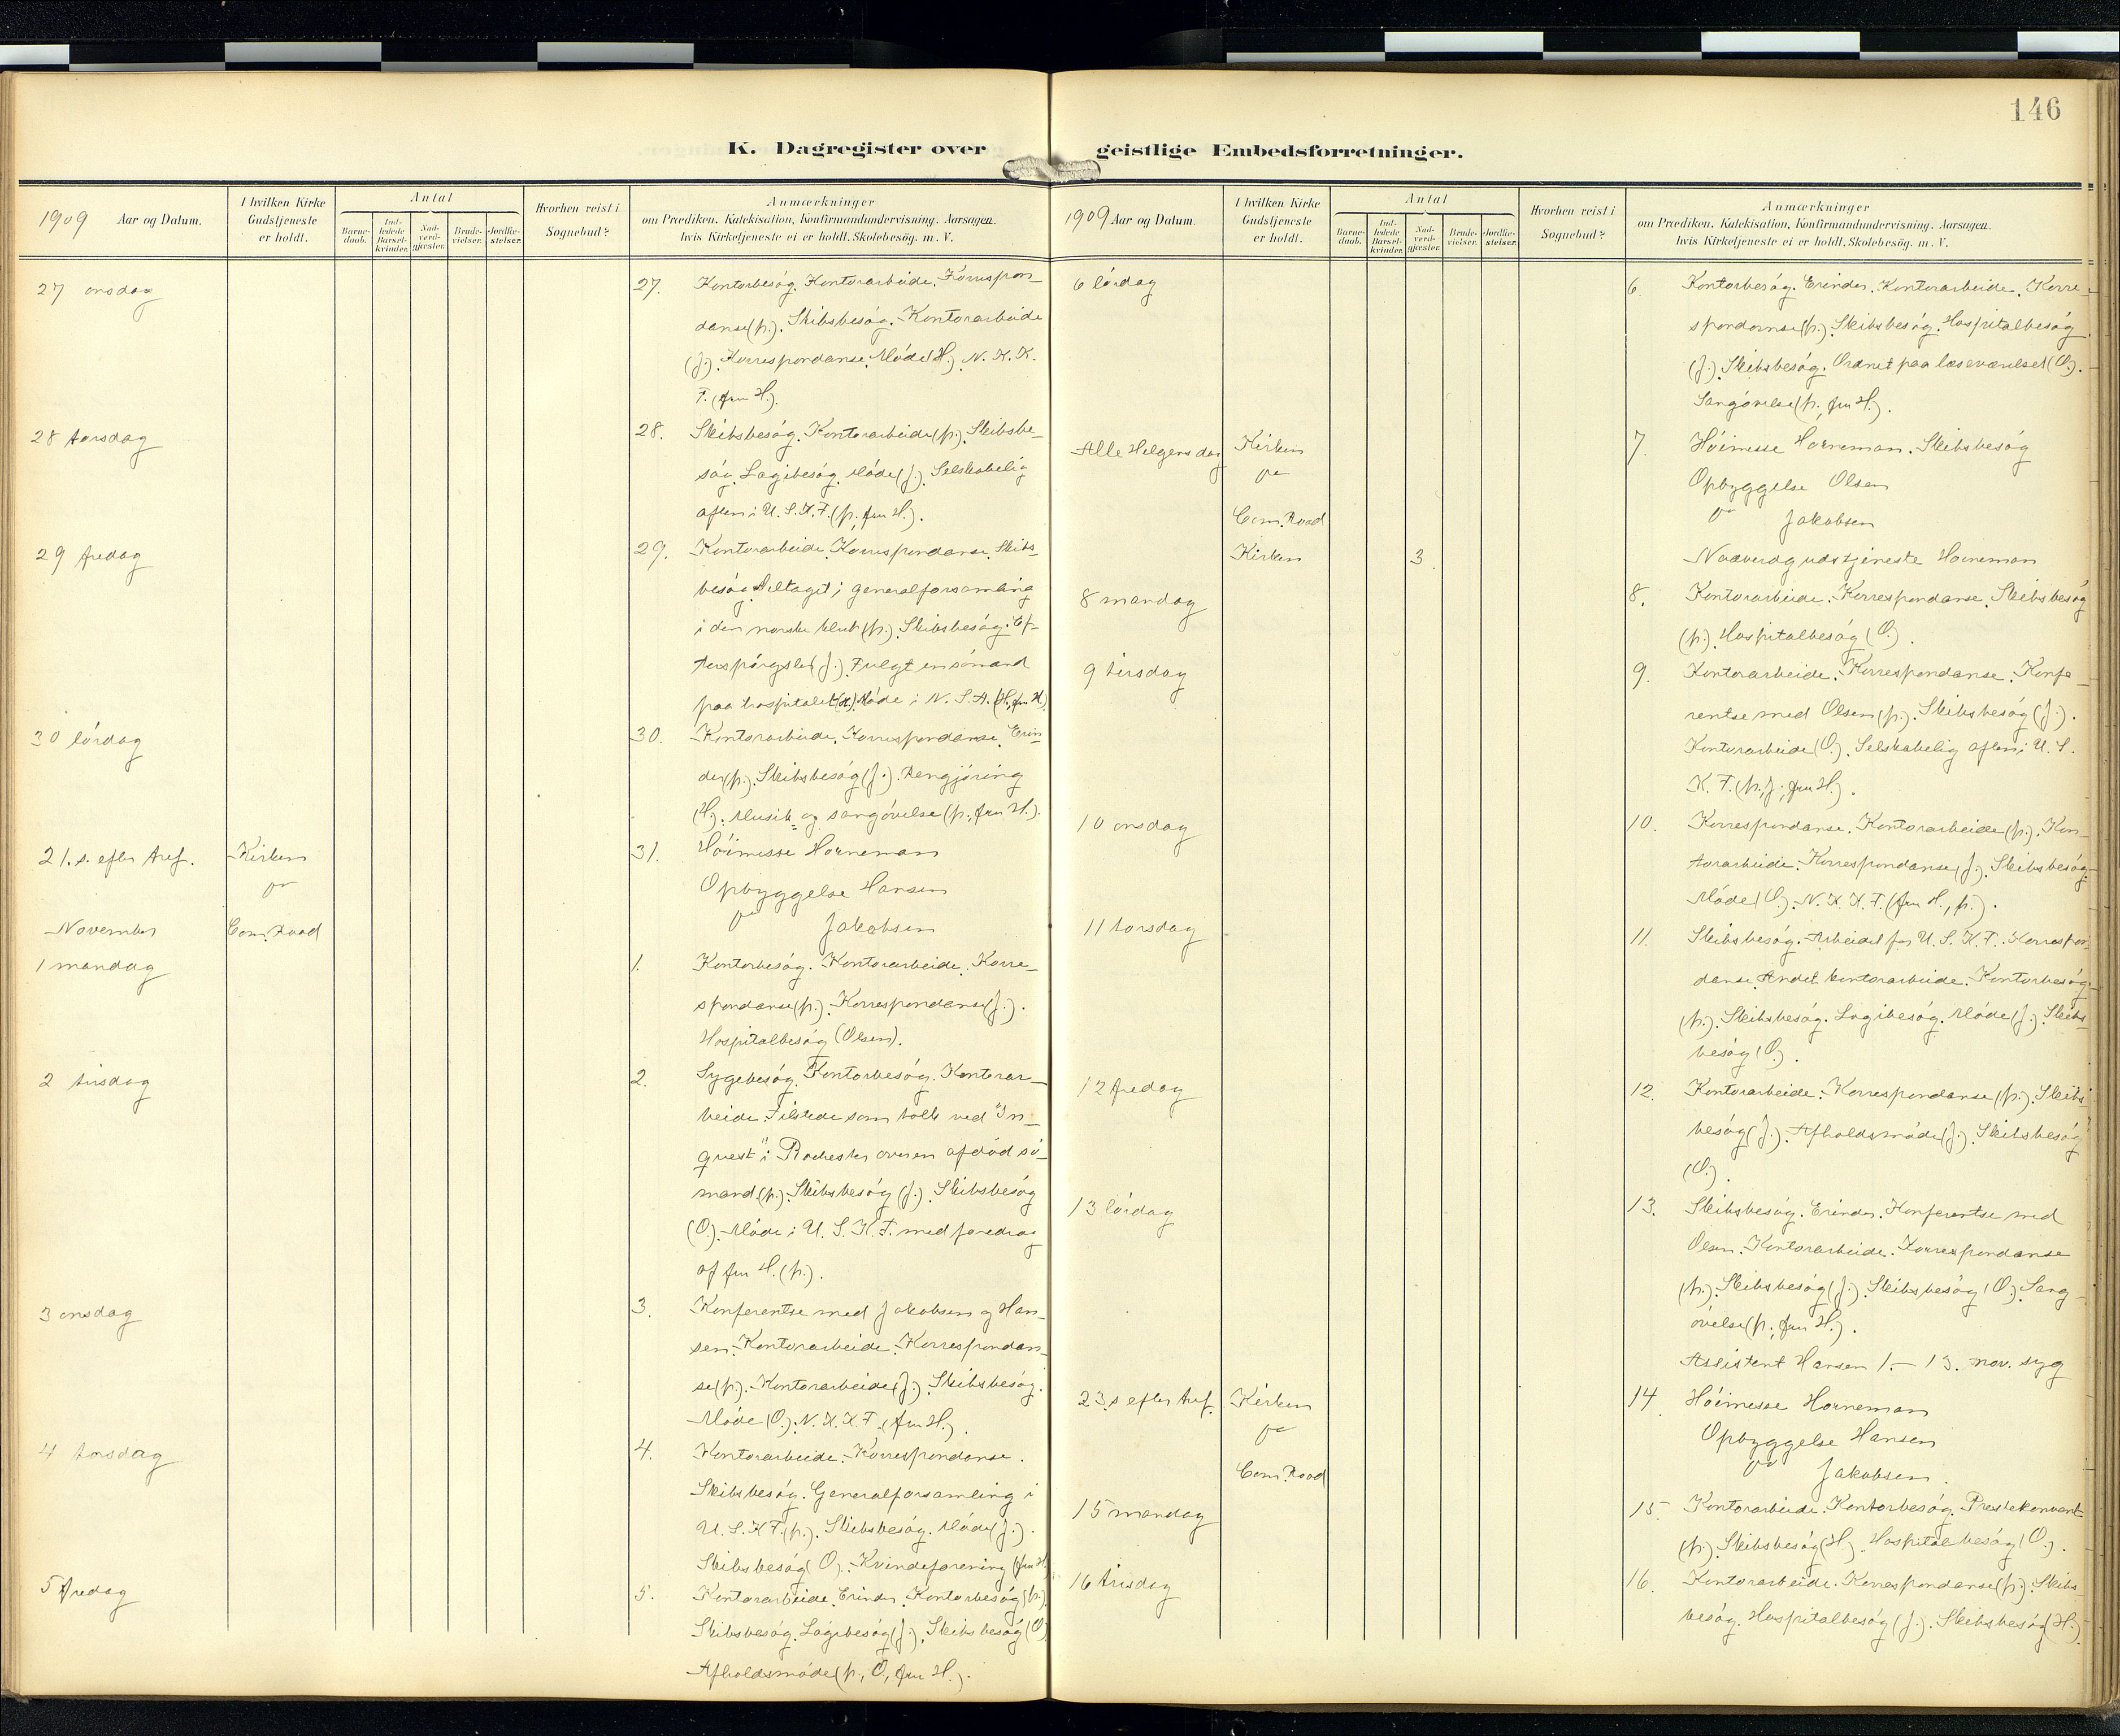 146
K. Dagregister over geistlige Embedsforretninger.
1909 Aar og Datum.
I hvilken Kirke Gudstjeneste er holdt.
Antal
Barnedaab.
Indledede Barselkvinder.
Nadverdgjæster.
Brudevielser.
Jordfæstelser.
Hvorhen reist i Sognebud?
Anmærkninger
om Prædiken, Katekisation, Konfirmandundervisning. Aarsagen,
hvis Kirketjeneste ei er holdt. Skolebesög. m. V.
27 onsdag
27. Kontorbesøg. Kontorarbeide. Korrespon-
danse (p.). Skibsbesøg. Kontorarbeide
(J.). Korrespondanse. Møde (H.). N. K. K.
F. (fru H.).
28 torsdag
28. Skibsbesøg. Kontorarbeide (p.). Skibsbe-
søg. Logibesøg. Møde (J.). Selskabelig
aften i U. S. K. F. (p., fru H.).
29 fredag
29. Kontorarbeide. Korrespondanse. Skibs-
besøg. Deltaget i generalforsamling
i den norske klub (p.). Skibsbesøg. Ef-
terspørgsler (J.). Fulgt en sømand
paa hospitalet (H.). Møde i N. S. A. (H., fru H.)
30 lørdag
30. Kontorarbeide. Korrespondanse. Erin-
der (p.). Skibsbesøg (J.). Rengjøring
(H.). Musik- og sangøvelse (p., fru H.).
21. s. efter tref. Kirken
31. Höimesse Horneman
Opbyggelse Hansen
November Com. Road
Jakobsen
1 mandag
1. Kontorbesøg. Kontorarbeide. Korre-
spondanse (p.). Korrespondanse (J.).
Hospitalbesøg (Olsen).
2 tirsdag
2. Sygebesøg. Kontorbesøg. Kontorar-
beide. Tilstede som tolk ved "In-
quest" i Rochester over en afdød sø-
mand (p.). Skibsbesøg (J.). Skibsbesøg
(O.). Møde i U. S. K. F. med foredrag
af fru H. (p.).
3 onsdag
3. Konferentse med Jakobsen og Han-
sen. Kontorarbeide. Korrespondan-
se (p.). Kontorarbeide (J.). Skibsbesøg.
Møde (O.). N. K. K. F. (fru H.).
4 torsdag
4. Kontorarbeide. Korrespondanse.
Skibsbesøg. Generalforsamling i
U. S. K F. (p.). Skibsbesøg. Møde (J.).
Skibsbesøg (O.). Kvindeforening (fru H.
5 fredag
5. Kontorarbeide. Erinder. Kontorbesøg (p.).
Skibsbesøg. Logibesøg (J.). Skibsbesøg (O)
Afholdsmøde (p., O., fru H.).
1909 Aar og Datum.
I hvilken Kirke Gudstjeneste er holdt.
Antal
Barnedaab.
Indledede Barselkvinder.
Nadverdgjæster.
Brudevielser.
Jordfæstelser.
Hvorhen reist i Sognebud?
Anmærkninger
om Prædiken, Katekisation, Konfirmandundervisning. Aarsagen,
hvis Kirketjeneste ei er holdt. Skolebesög. m. V.
6 lørdag
6. Kontorbesøg. Erinder. Kontorarbeide. Korre-
spondanse (p.). Skibsbesøg. Hospitalbesøg
(J.). Skibsbesøg. Ordnet paa læseværelset (O.).
Sangøvelse (p., fru H.).
Alle Helgens dag Kirken
7. Höimesse Horneman. Skibsbesøg
Opbyggelse Olsen
Com. Road
Jakobsen
Kirken 3 Nadverdgudstjeneste Horneman
8 mandag
8. Kontorarbeide. Korrespondanse. Skibsbesøg
(p.). Hospitalbesøg (O.).
9 tirsdag
9. Kontorarbeide. Korrespondanse. Konfe-
rentse med Olsen (p.). Skibsbesøg (J.).
Kontorarbeide (O.). Selskabelig aften i U. S.
K. F. (p., J., fru H.).
10 onsdag
10. Korrespondanse. Kontorarbeide (p.). Kon-
torarbeide. Korrespondanse (J.). Skibsbesøg.
Møde (O.). N. K. K. F. (fru H., p.).
11 torsdag
11. Skibsbesøg. Arbeidet for U. S. K. F. Korrespon-
danse. Andet kontorarbeide. Kontorbesøg
(p.). Skibsbesøg. Logibesøg. Møde (J.). Skibs-
besøg (O.).
12 fredag
12. Kontorarbeide. Korrespondanse (p.). Skibs-
besøg (J.). Afholdsmøde (J.). Skibsbesøg
(O.).
13 lørdag
13. Skibsbesøg. Erinder. Konferentse med
Olsen. Kontorarbeide. Korrespondanse
(p.). Skibsbesøg (J.). Skibsbesøg (O.). Sang-
øvelse (p., fru H.).
Assistent Hansen 1.- 13. nov. syg
23. s efter tref. Kirken
14. Höimesse Horneman
Opbyggelse Hansen
Com. Road
Jakobsen.
15 mandag
15. Kontorarbeide. Kontorbesøg. Prestekonvent
(p.). Skibsbesøg (H.). Hospitalbesøg (O.).
16 tirsdag
16. Kontorarbeide. Korrespondanse (p.). Skibs-
besøg. Hospitalbesøg (J.). Skibsbesøg (H.).